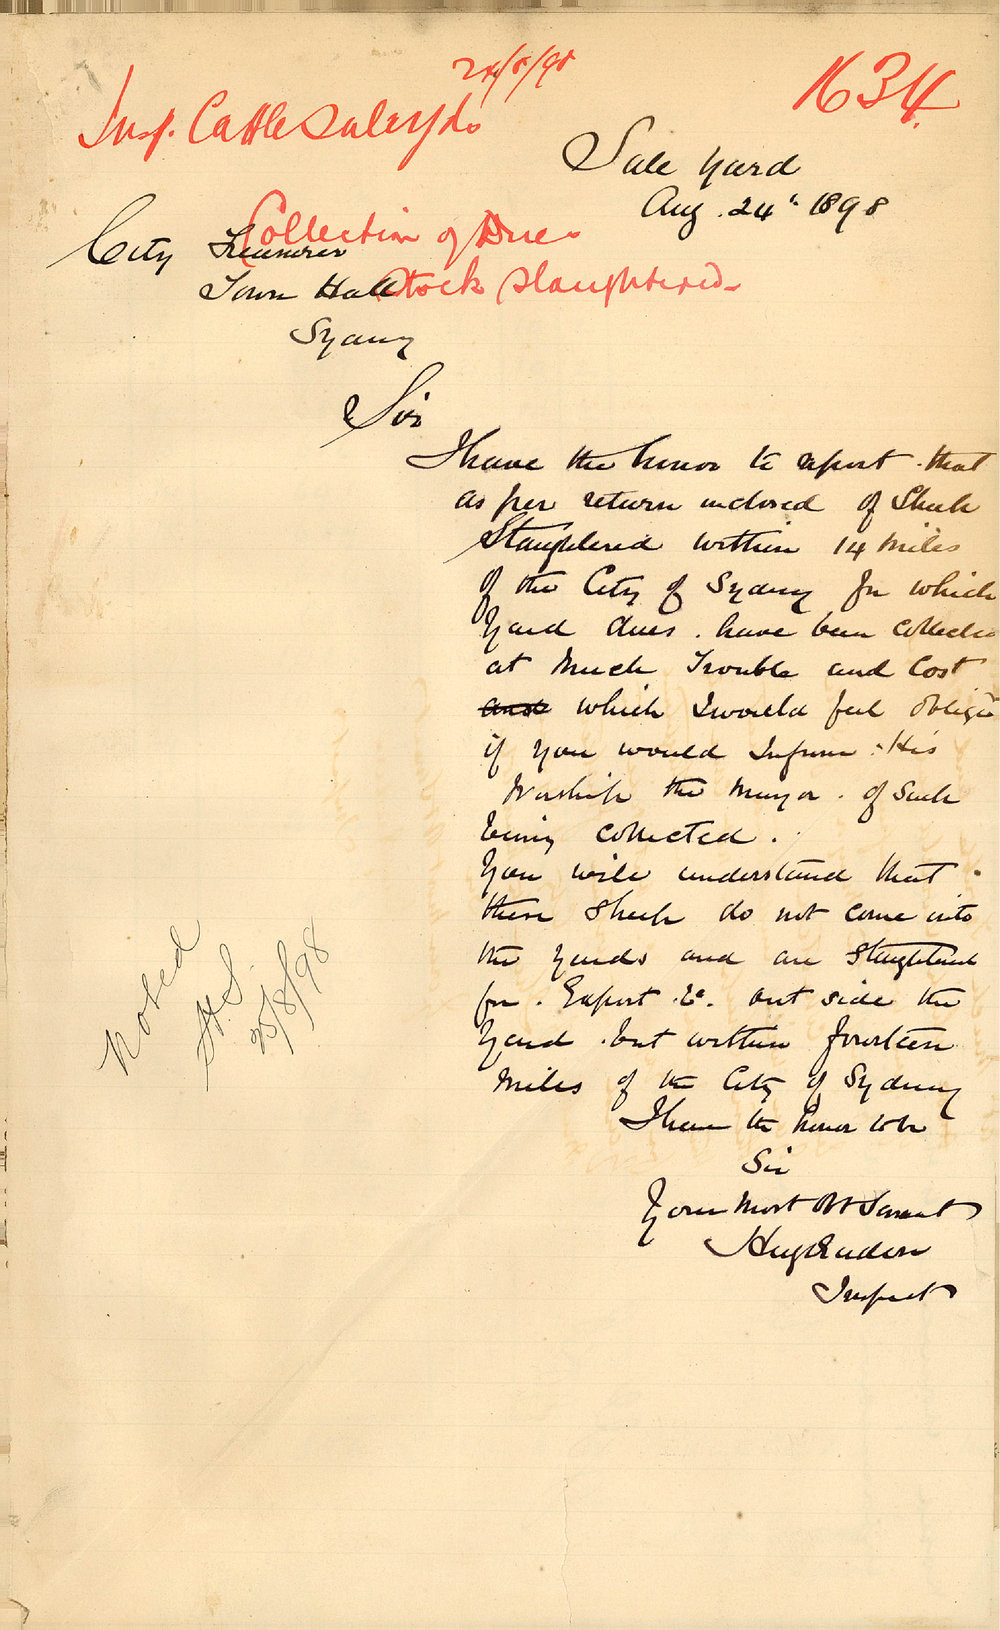 24/8/98
1634
Insp. Cattle Saleyds
Sale Yard
Aug. 24th 1898
Collection of Dues
City Treasurer
Stock Slaughtered
Town Hall
Sydney
Sir
I have the honor to report that
as per return inclosed of Sheep
Slaughtered within 14 miles
of the City of Sydney for which
Yard dues have been collected
at much Trouble and Cost
and which I would feel obliged
if you would Inform His
Worship the Mayor of Such
being collected.
You will understand that
these Sheep do not come into
the yards and are Slaughtered
for Export &c. out side the
Yard but within fourteen
miles of the City of Sydney
I have the honor to be
Sir
Your Most Obt Servant
Inspect
Noted
25/8/98